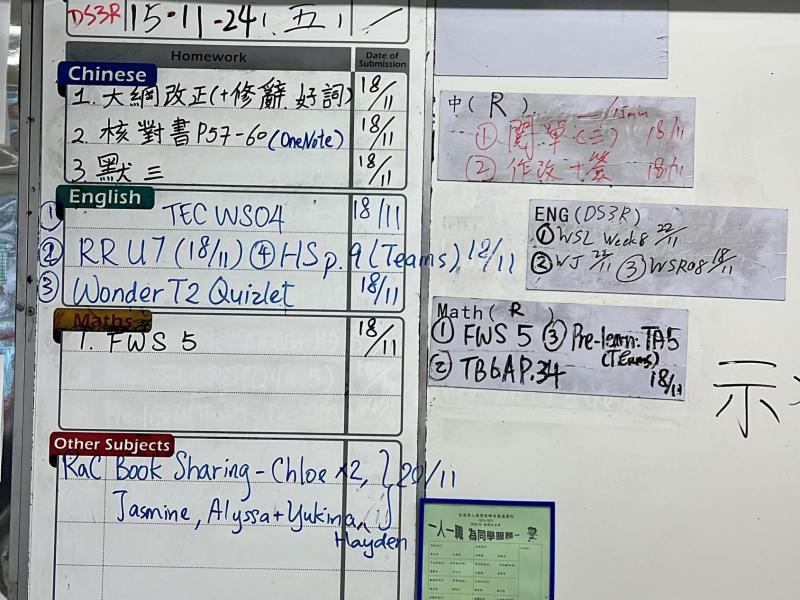 DS3R 15-11-24(五)
Homework Date of Submission
Chinese
1. 大網改正(+修辭 好詞) 18/11
2. 核對書P57-60(OneNote) 18/11
3 默三 18/11
English
① TEC WS04 18/11
② RR U7 (18/11) ④ HS p.9 (Teams) 18/11
③ Wonder T2 Quizlet 18/11
Maths
1. FWS 5 18/11
Other Subjects
RaC Book Sharing - Chloe x2, } 20/11
Jasmine, Alyssa + Yukina,
Hayden
中( R )
① 閱單(三) 18/11
② 作改 + 簽 18/11
ENG (DS3R)
① WSL Week8 22/11
② WJ 22/11 ③ WSR08 18/11
Math( R )
① FWS 5 ③ Pre-learn: TA5
(Teams)
② TB6A P.34 18/11
示
一人一職 為同學服務